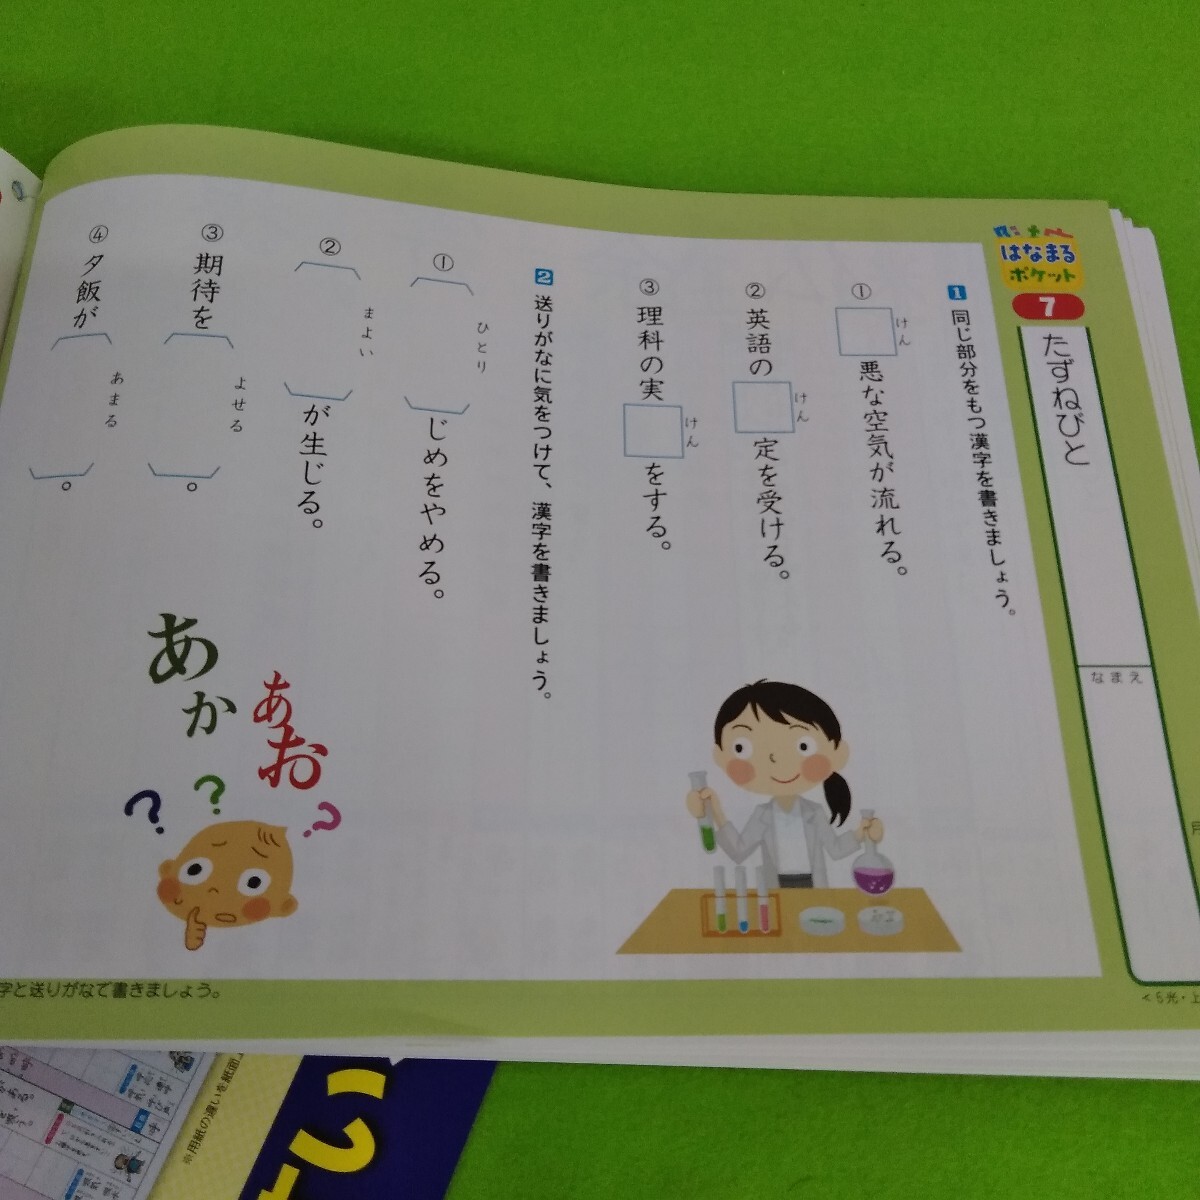 はなまる
ポケット
7
たずねびと
なまえ
1 同じ部分をもつ漢字を書きましょう。
① けん 悪な空気が流れる。
② 英語の けん 定を受ける。
③ 理科の実 けん をする。
2 送りがなに気をつけて、漢字を書きましょう。
① ひとり じめをやめる。
② まよい が生じる。
③ 期待を よせる 。
④ 夕飯が あまる 。
あか
あお
? ? ?
字と送りがなで書きましょう。
＜5光・上
※用紙の違いを紙面上